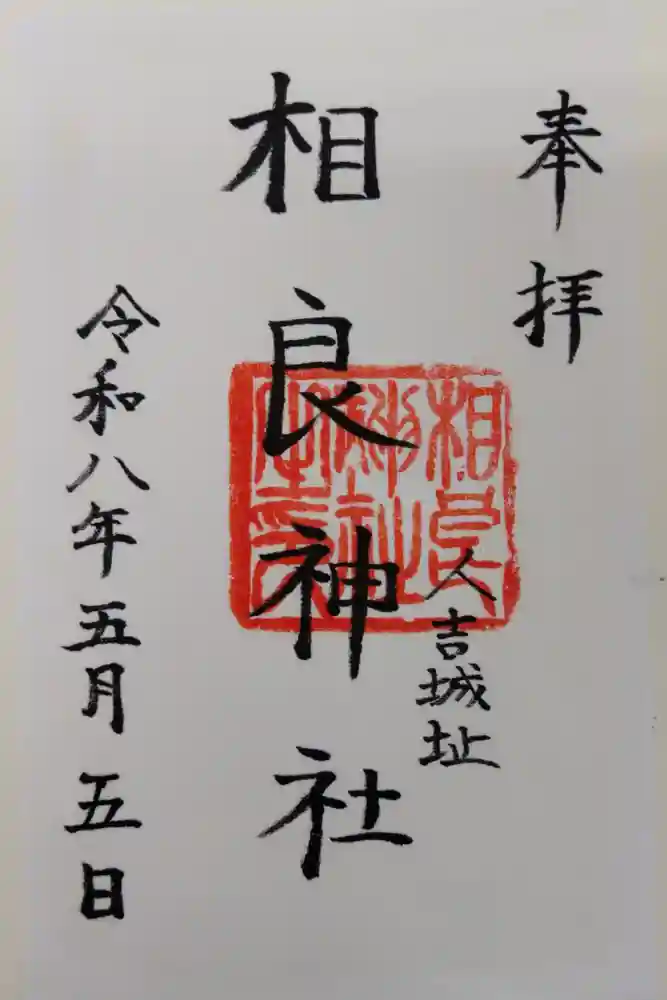 奉拝
人吉城址
相良神社
相良
神社
之印
令和八年五月五日